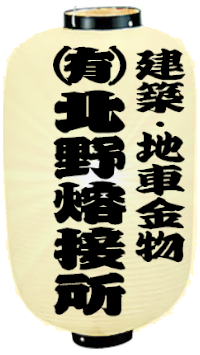 建築・地車金物
(有)北野熔接所